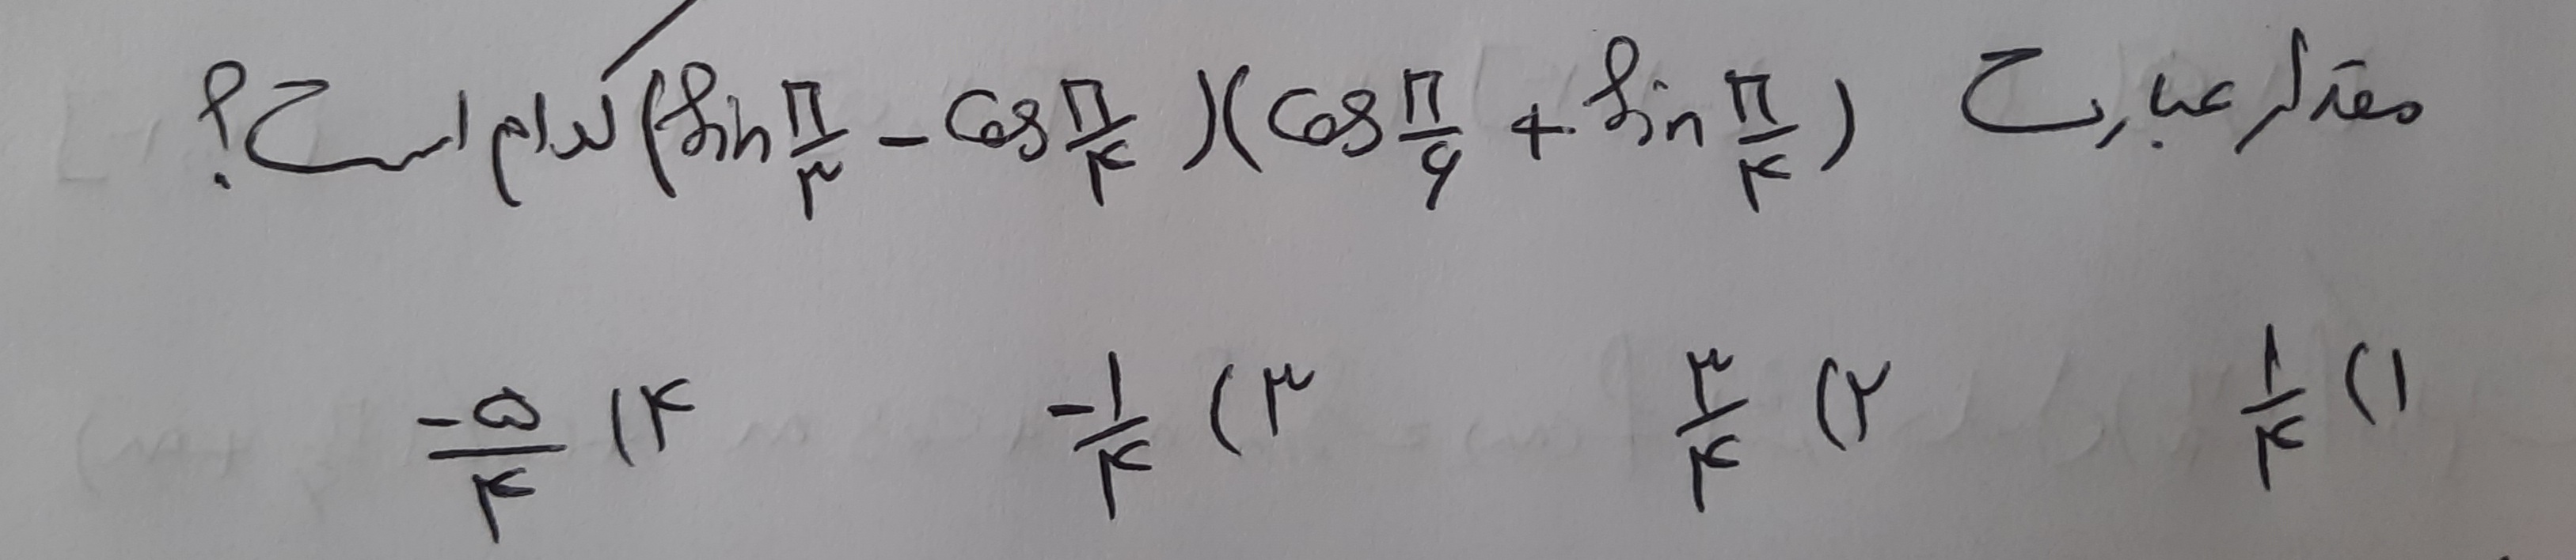 مقدار عبارت (sin π/۳ - cos π/۴)(cos π/۶ + sin π/۴) کدام است؟
۱) ۱/۴ ۲) ۳/۴ ۳) -۱/۴ ۴) -۵/۴